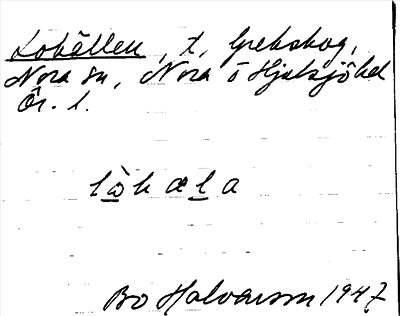 Lokällen, t, Grekskog,
Nora sn, Nora o Hjulsjö hd
Ör. l.
lòkæla
Bo Halvarson 1947